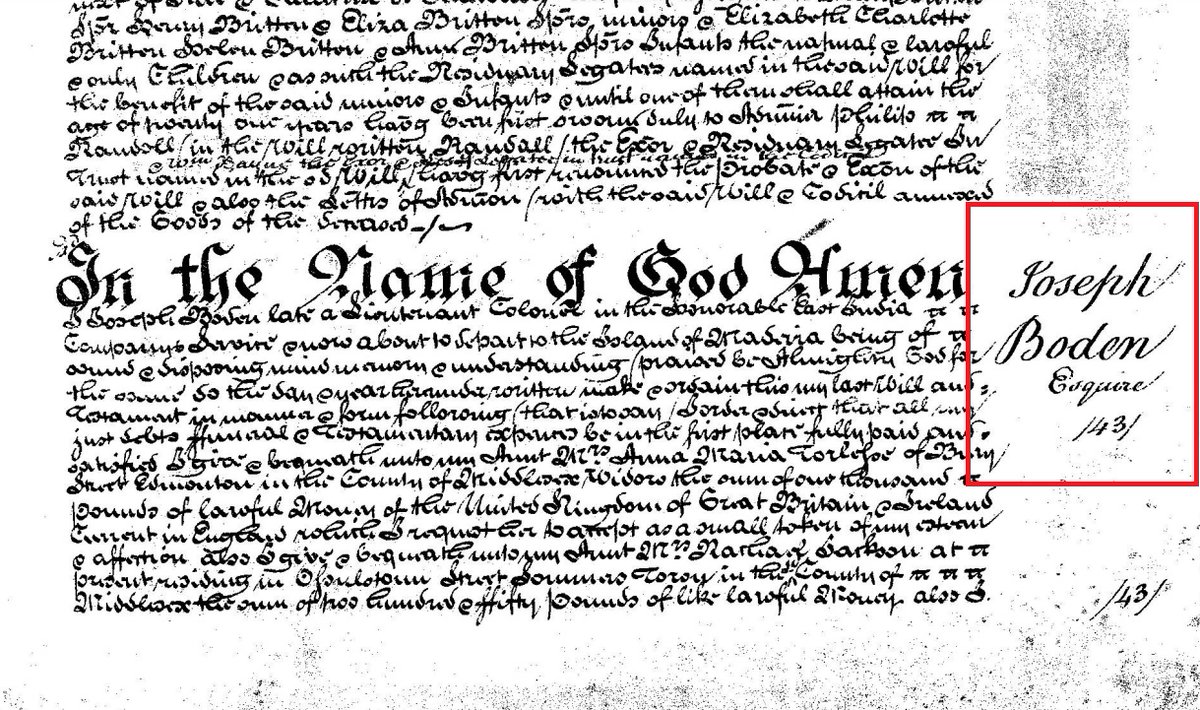 Jn̄r Henry Britten & Eliza Britten Sp̄rs, minors & Elizabeth Charlotte
Britten Helen Britten & Ann Britten Sp̄rs Infants the natural & lawful
& only Children & as such the Residuary Legatees named in the said Will for
the benefit of the said minors & Infants & until one of them shall attain the
age of twenty one years hav̄g been first sworn duly to Adm̄ier Philip
Randell /in the Will written Randall/ the Exor & Residuary Legatee In
Trust named in the sd Will hav̄g first renounced the Probate & Exon of the
said Will & also the Lettrs of Adm̄on /with the said Will & Codicil annexed
of the Goods of the deceased
In the Name of God Amen
I Joseph Boden late a Lieutenant Colonel in the Honorable East India
Companys Service & now about to depart to the Island of Madeira being of
sound & disposing mind memory & understanding /praised be Almighty God for
the same do the day & year hereunder written make & ordain this my last Will and
Testament in manner & form following /that is to say/ I order & direct that all my
just debts ffuneral & Testamentary expences be in the first place fully paid and
satisfied I give & bequeath unto my Aunt Mrs. Anna Maria Torlesse of Bury
Street Edmonton in the County of Middlesex Widow the sum of one thousand
pounds of lawful Money of the United Kingdom of Great Britain & Ireland
Current in England which I request her to accept as a small token of my esteem
& affection also I give & bequeath unto my Aunt Mrs. Rachael Jackson at
present residing in Ossulston Street Sommers Town in the County of
Middlesex the sum of two hundred & ffifty Pounds of like lawful Money also I
Joseph
Boden
Esquire
/43/
/43/